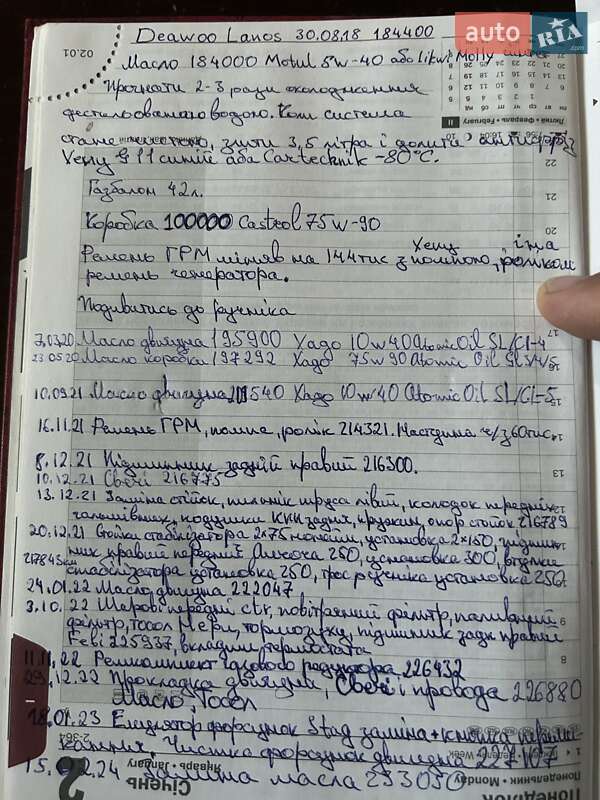 auto RIA.com
Deawoo Lanos 30.08.18 184400
Масло 184000 Motul 5w-40 або Likwi Molly
Прочнати 2-3 рази охолодження
дестельованою водою. Коли система
стане чистою, злити 3,5 літра і долити антифріз
Хепу G11 синій або Cartechnik -80°C.
Газбалон 42л.
Коробка 100000 Castrol 75w-90
Ремень ГРМ міняв на 144тис з помпою, роликом
Хепу і на
ремень генератора.
Подивитись до ручніка
7.03.20 Масло двигуна 195900 Хадо 10w40 Atomic Oil SL/CI-4
23.05.20 Масло коробка 197292 Хадо 75w90 Atomic Oil
10.09.21 Масло двигуна 211540 Хадо 10w40 Atomic Oil SL/CI-5
16.11.21 Ремень ГРМ, помпа, ролік 214321. Наступна ч/з 60тис.
8.12.21 Підшипник задній правий 216300.
10.12.21 Свечі 216775
13.12.21 Заміна стійок, пильнік шруса лівий, колодок передніх
гальмівних, подушки задніх, пружин, опор стойок 216789
20.12.21 Стойки стабілізатора 2×75 установка 2×150,
217845км
ник правий передній 250, установка 300, втулки
стабілізатора установка 250, трос ручніка установка 250.
24.01.22 Масло двигуна 222047
3.10.22 Шарові передні ctr, повітряний фільтр, паливний
фільтр, тосол, тормозуху, підшипник задн правий
Febi 225937, вкладиш термостата
11.11.22 Ремкомплект газового редуктора 226432
29.12.22 Прокладка двигуна, Свечі і провода 226880
Масло, Тосол
18.01.23 Емулятор форсунок Stag заміна + кнопка
Чистка форсунок двигуна 227107
15.02.24 Заміна масла 233050
02.01
22
21
20
17
16
15
14
13
9
8
2-364
Січень
Январь • January
Понеділок
Понедельник • Monday
Лютий • Февраль • February